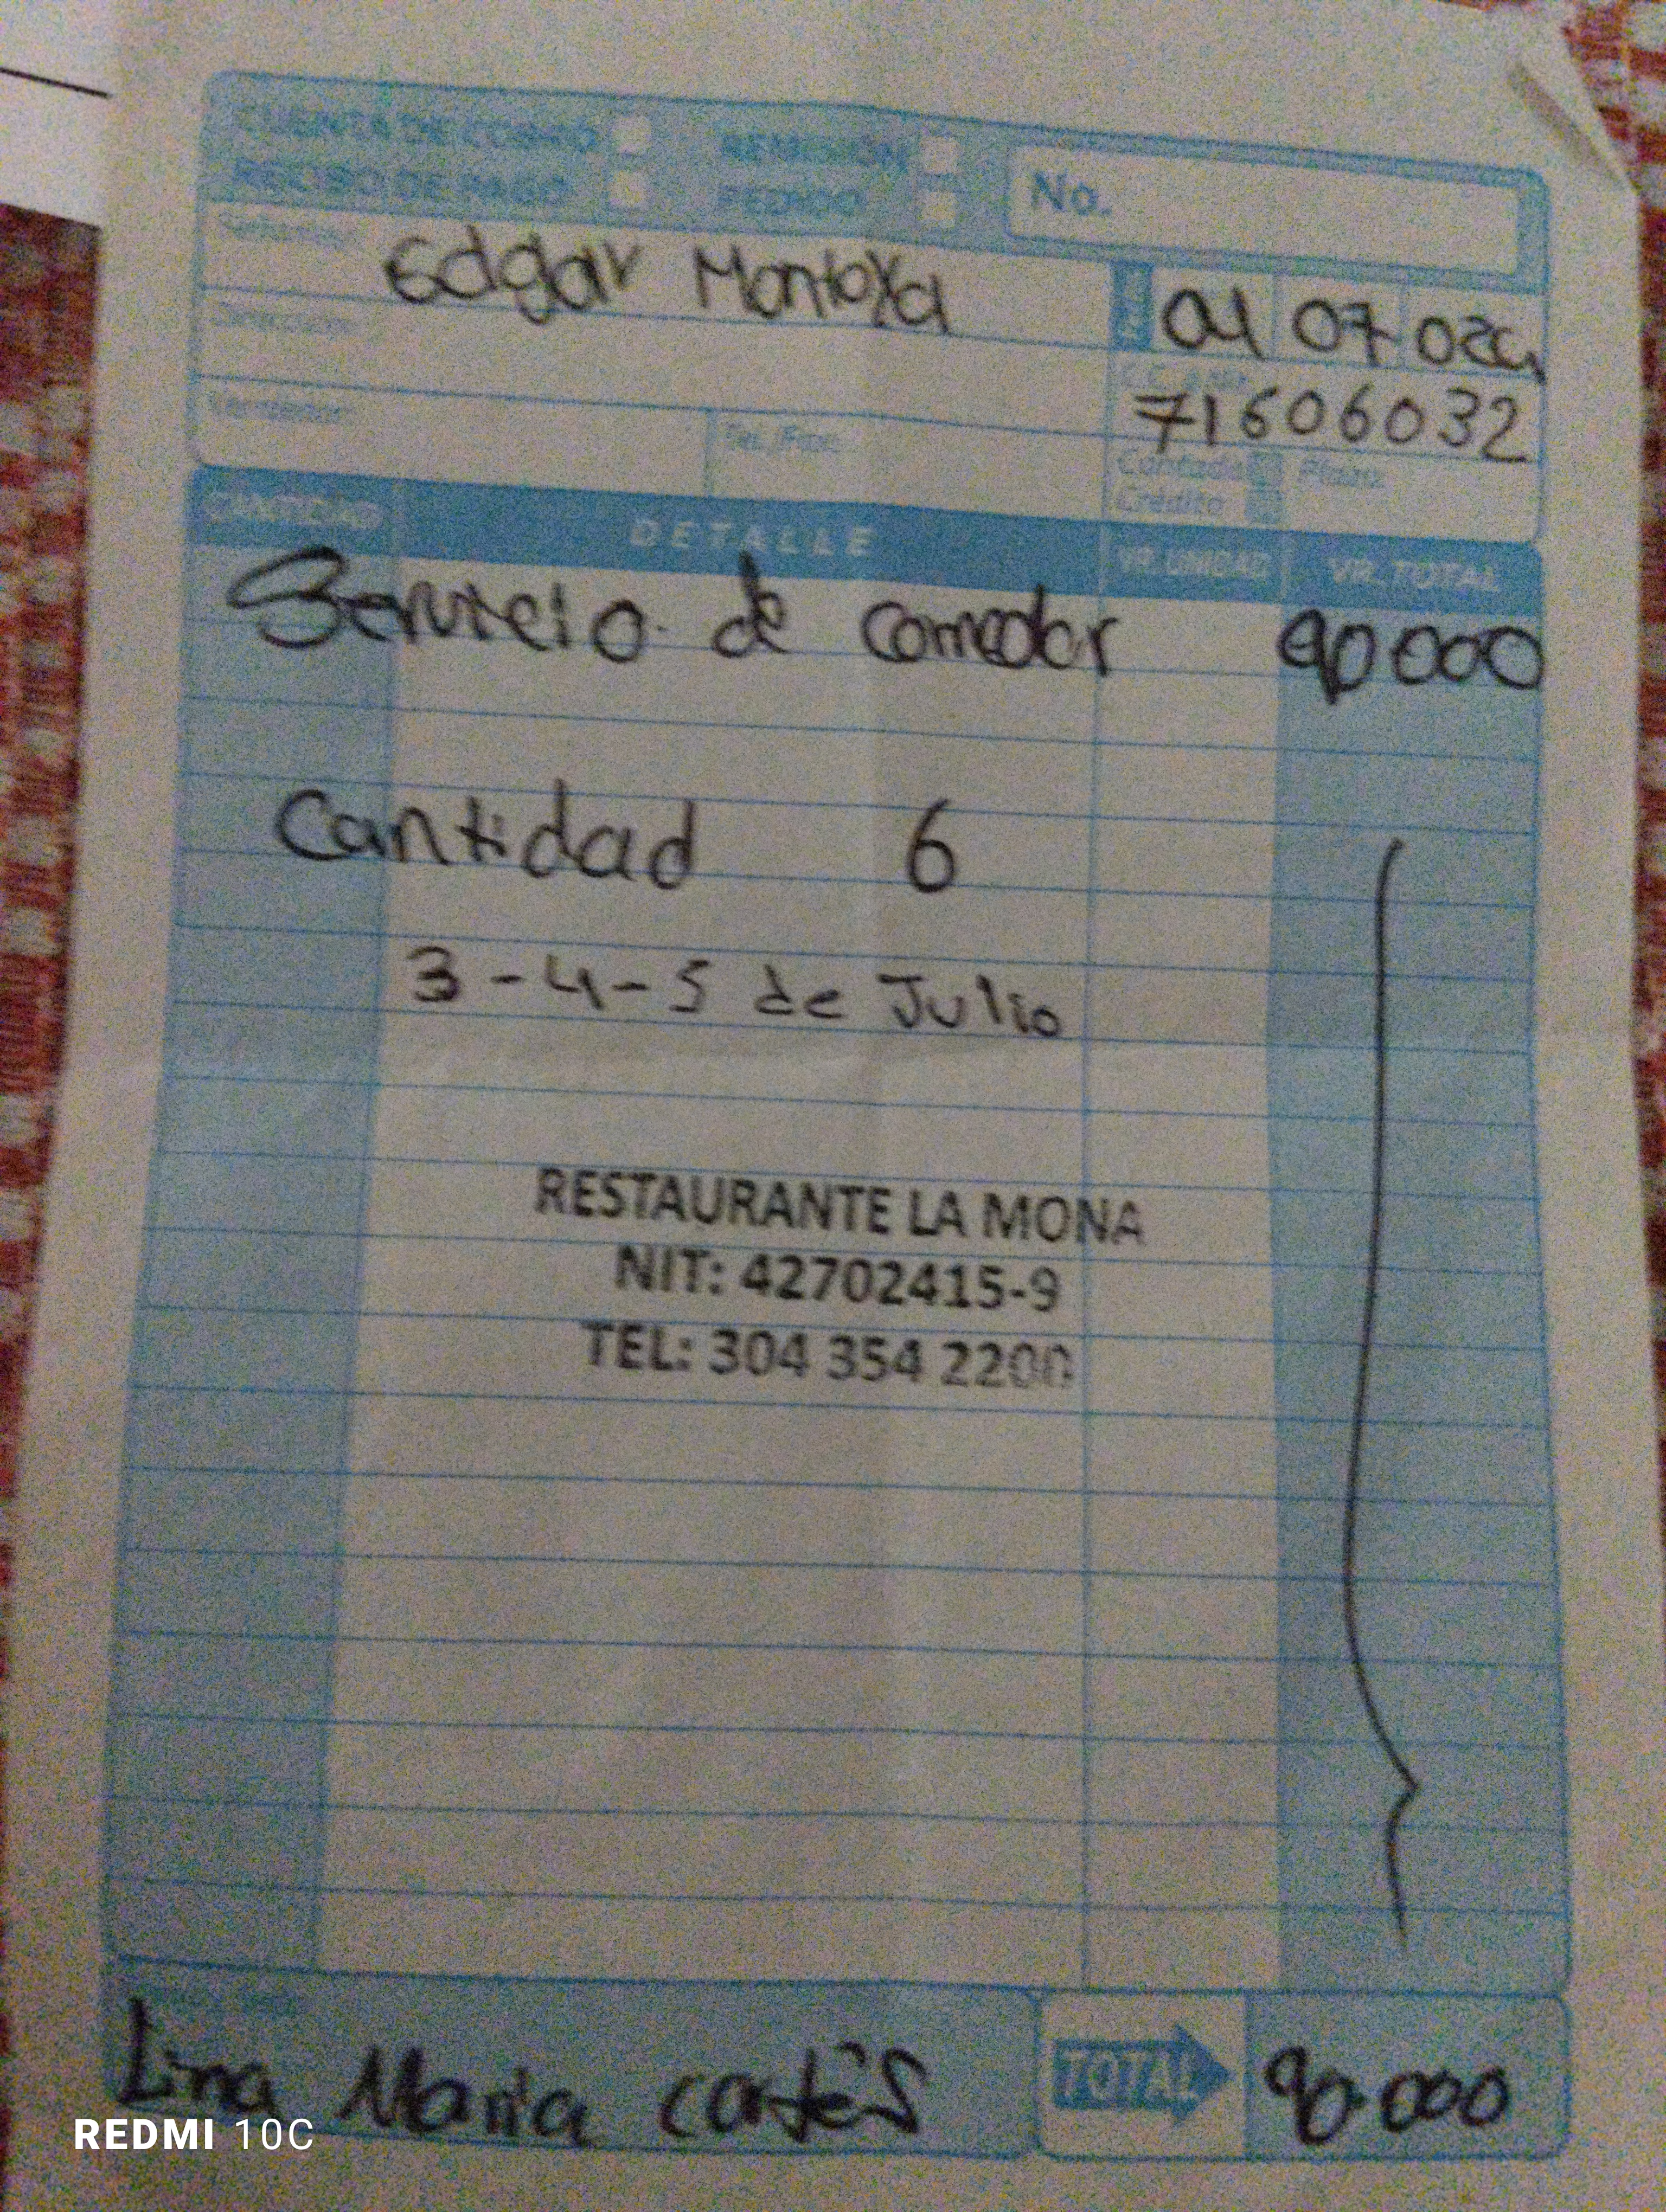 CUENTA DE COBRO REMISIÓN
RECIBO DE PAGO PEDIDO
No.
Edgar Montoya
04 07 024
Dirección:
71606032
Vendedor: Tel./Fax:
Contado Plazo:
Crédito
CANTIDAD DETALLE VR. UNIDAD VR. TOTAL
Servicio de comedor 90000
Cantidad 6
3-4-5 de Julio
RESTAURANTE LA MONA
NIT: 42702415-9
TEL: 304 354 2200
Lina Maria cortés TOTAL 90.000
REDMI 10C